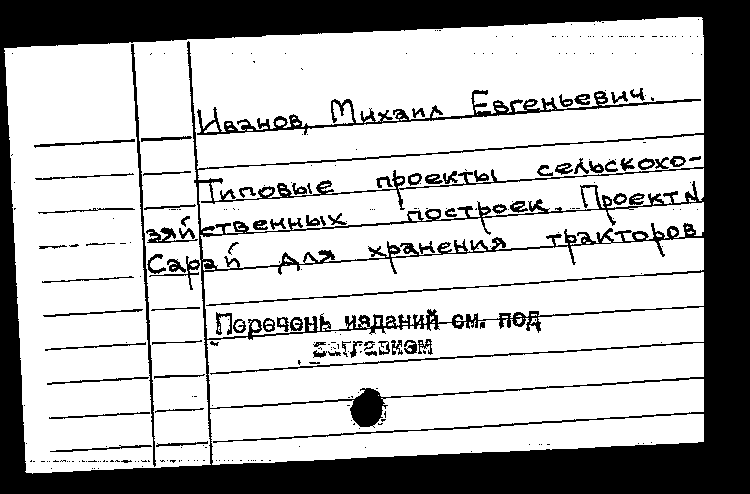 Иванов, Михаил Евгеньевич.
Типовые проекты сельскохо-
зяйственных построек. Проект №
Сарай для хранения тракторов.
Перечень изданий см. под
заглавием